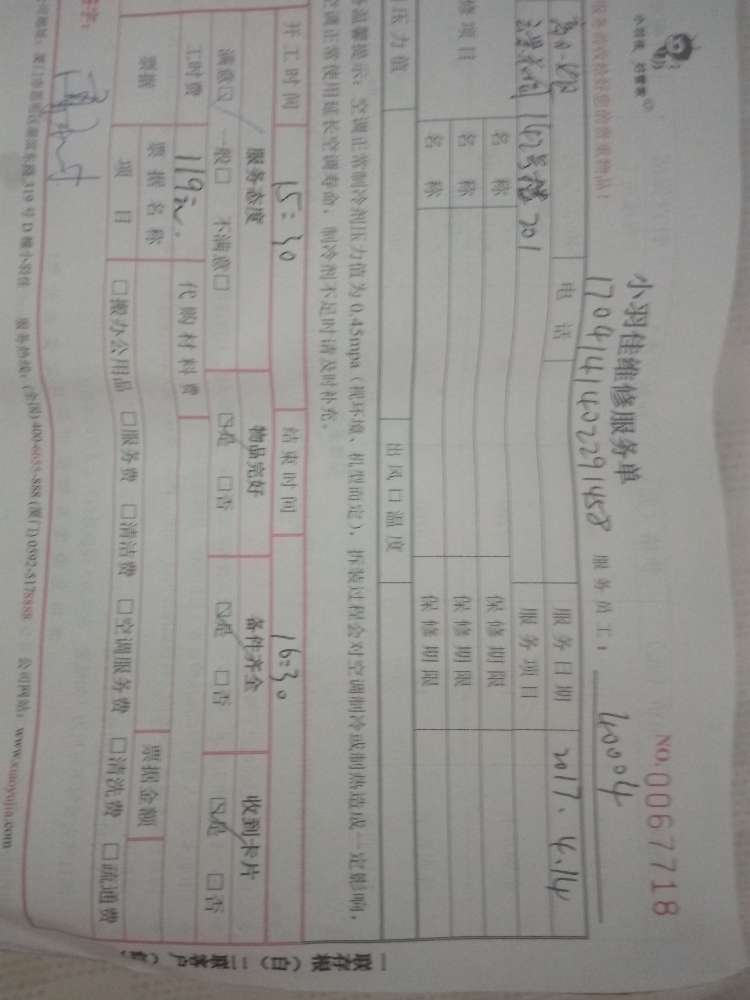 小羽佳 好管家
小羽佳维修服务单
NO. 0067718
1704141402291458 服务员工: 40004
电话 服务日期 2017.4.14
142号楼701 服务项目
修项目 名称 保修期限
名称 保修期限
名称 保修期限
压力值 出风口温度
温馨提示:空调正常制冷剂压力值为0.45mpa(视环境、机型而定),拆装过程会对空调制冷或制热造成一定影响,
空调正常使用延长空调寿命,制冷剂不足时请及时补充。
开工时间 15:30 结束时间 16:30
服务态度 物品完好 备件齐全 收到卡片
满意☑ 一般□ 不满意□ ☑是 □否 ☑是 □否 ☑是 □否
工时费 119元. 代购材料费
票据 票据名称 票据金额
项目 □搬办公用品 □服务费 □清洁费 □空调服务费 □清洗费 □疏通费
319号D幢小羽佳 服务热线:(全国)400-6655-888 (厦门)0592-5178888 公司网站:www.xiaoyujia.com
一联存根(白)二联客户(